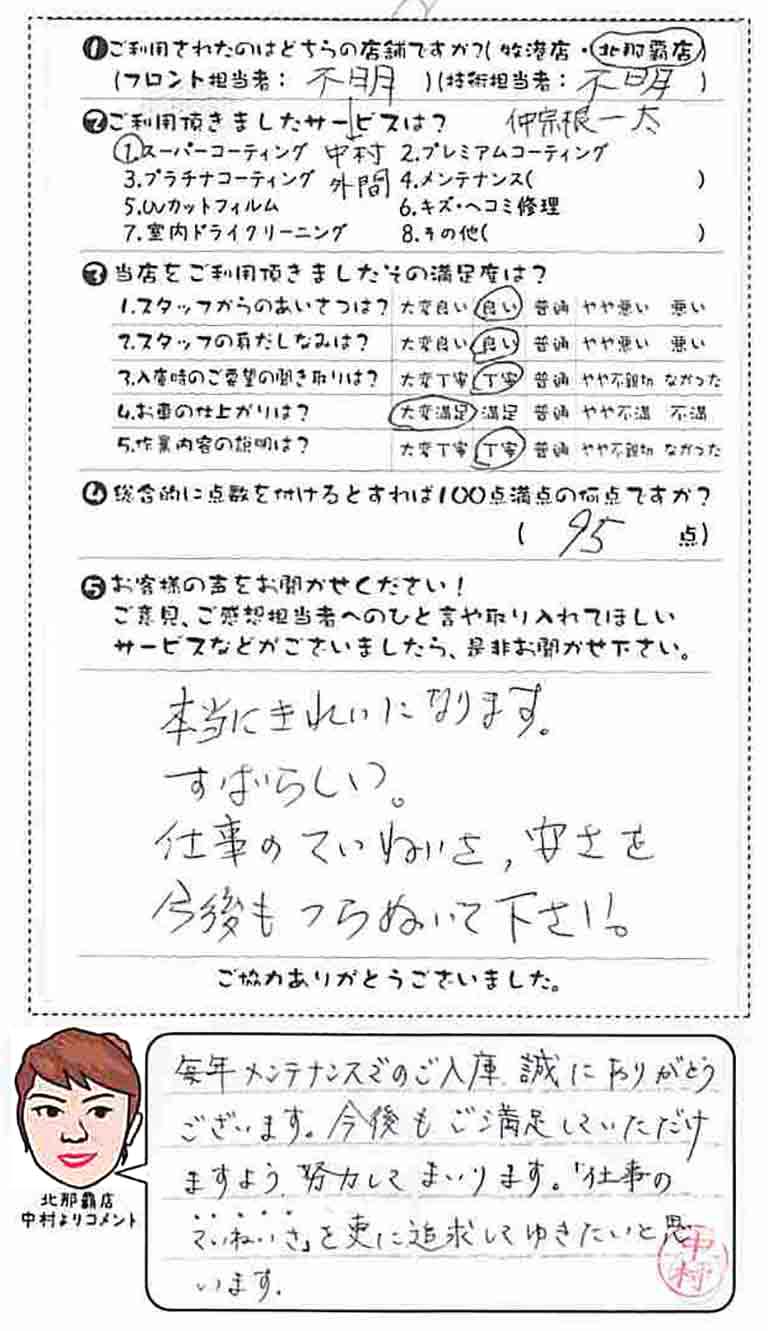 ❶ご利用されたのはどちらの店舗ですか?(牧港店・北那覇店)
(フロント担当者: 不明 )(技術担当者: 不明 )
❷ご利用頂きましたサービスは? 仲宗根一太
1.スーパーコーティング 中村 2.プレミアムコーティング
3.プラチナコーティング 外間 4.メンテナンス( )
5.UVカットフィルム 6.キズ・ヘコミ修理
7.室内ドライクリーニング 8.その他( )
❸当店をご利用頂きましたその満足度は?
1.スタッフからのあいさつは? 大変良い 良い 普通 やや悪い 悪い
2.スタッフの身だしなみは? 大変良い 良い 普通 やや悪い 悪い
3.入庫時のご要望の聞き取りは? 大変丁寧 丁寧 普通 やや不親切 なかった
4.お車の仕上がりは? 大変満足 満足 普通 やや不満 不満
5.作業内容の説明は? 大変丁寧 丁寧 普通 やや不親切 なかった
❹総合的に点数を付けるとすれば100点満点の何点ですか?
( 95 点)
❺お客様の声をお聞かせください!
ご意見、ご感想担当者へのひと言や取り入れてほしい
サービスなどがございましたら、是非お聞かせ下さい。
本当にきれいになります。
すばらしい。
仕事のていねいさ,安さを
今後もつらぬいて下さい。
ご協力ありがとうございました。
毎年メンテナンスでのご入庫、誠にありがとう
ございます。今後もご満足していただけ
ますよう、努力してまいります。「仕事の
ていねいさ」を更に追求してゆきたいと思
います。
中村
北那覇店
中村よりコメント